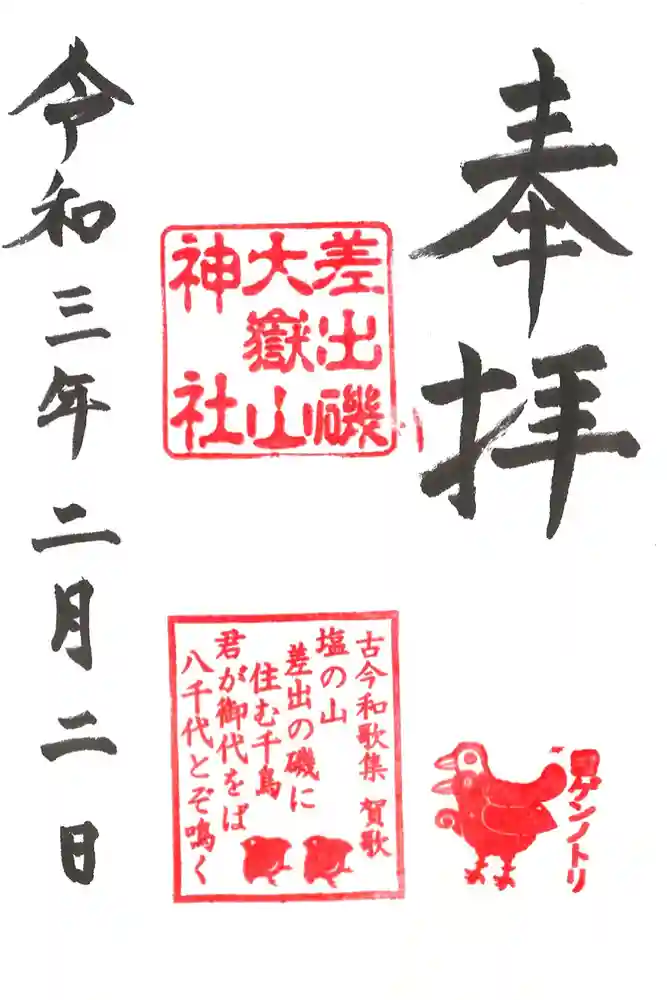 奉拝
差出磯
大嶽山
神社
古今和歌集 賀歌
塩の山
差出の磯に
住む千鳥
君が御代をば
八千代とぞ鳴く
ゲンノトリ
令和三年二月二日